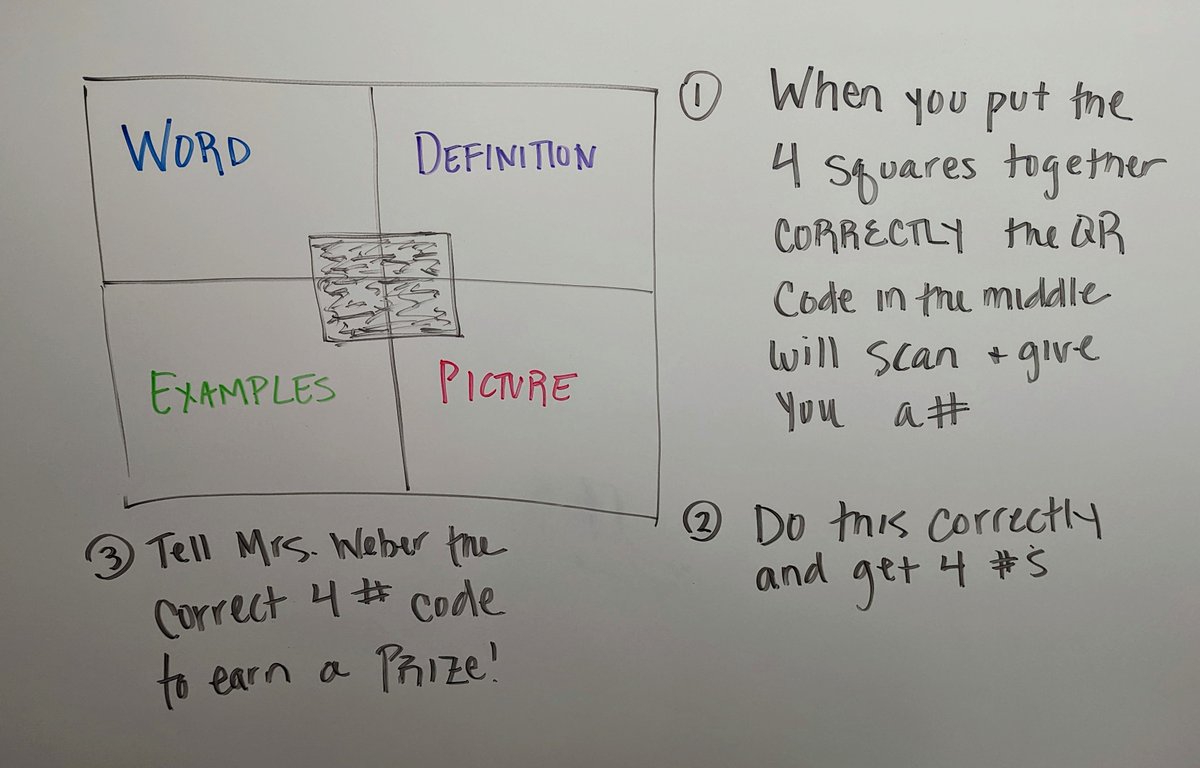 WORD
DEFINITION
EXAMPLES
PICTURE
① When you put the
4 squares together
CORRECTLY the QR
Code in the middle
will scan + give
you a #
② Do this correctly
and get 4 #'s
③ Tell Mrs. Weber the
correct 4 # code
to earn a PRIZE!